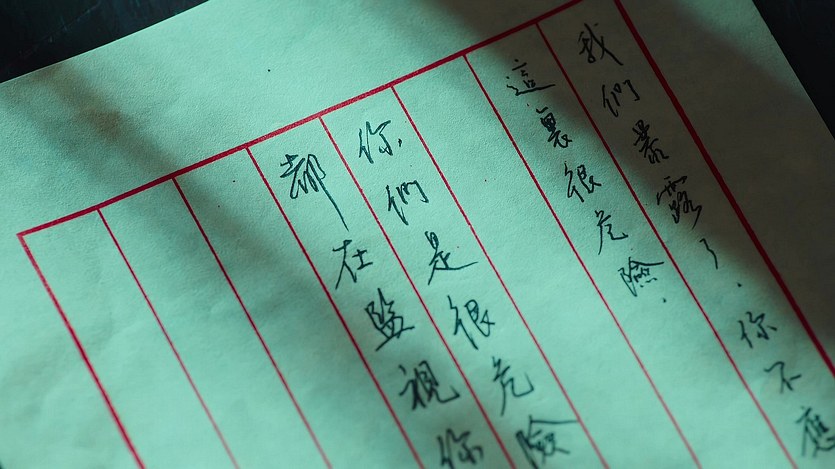 我們暴露了.你不應
這裏很危險.
你們是很危險
都在監視你